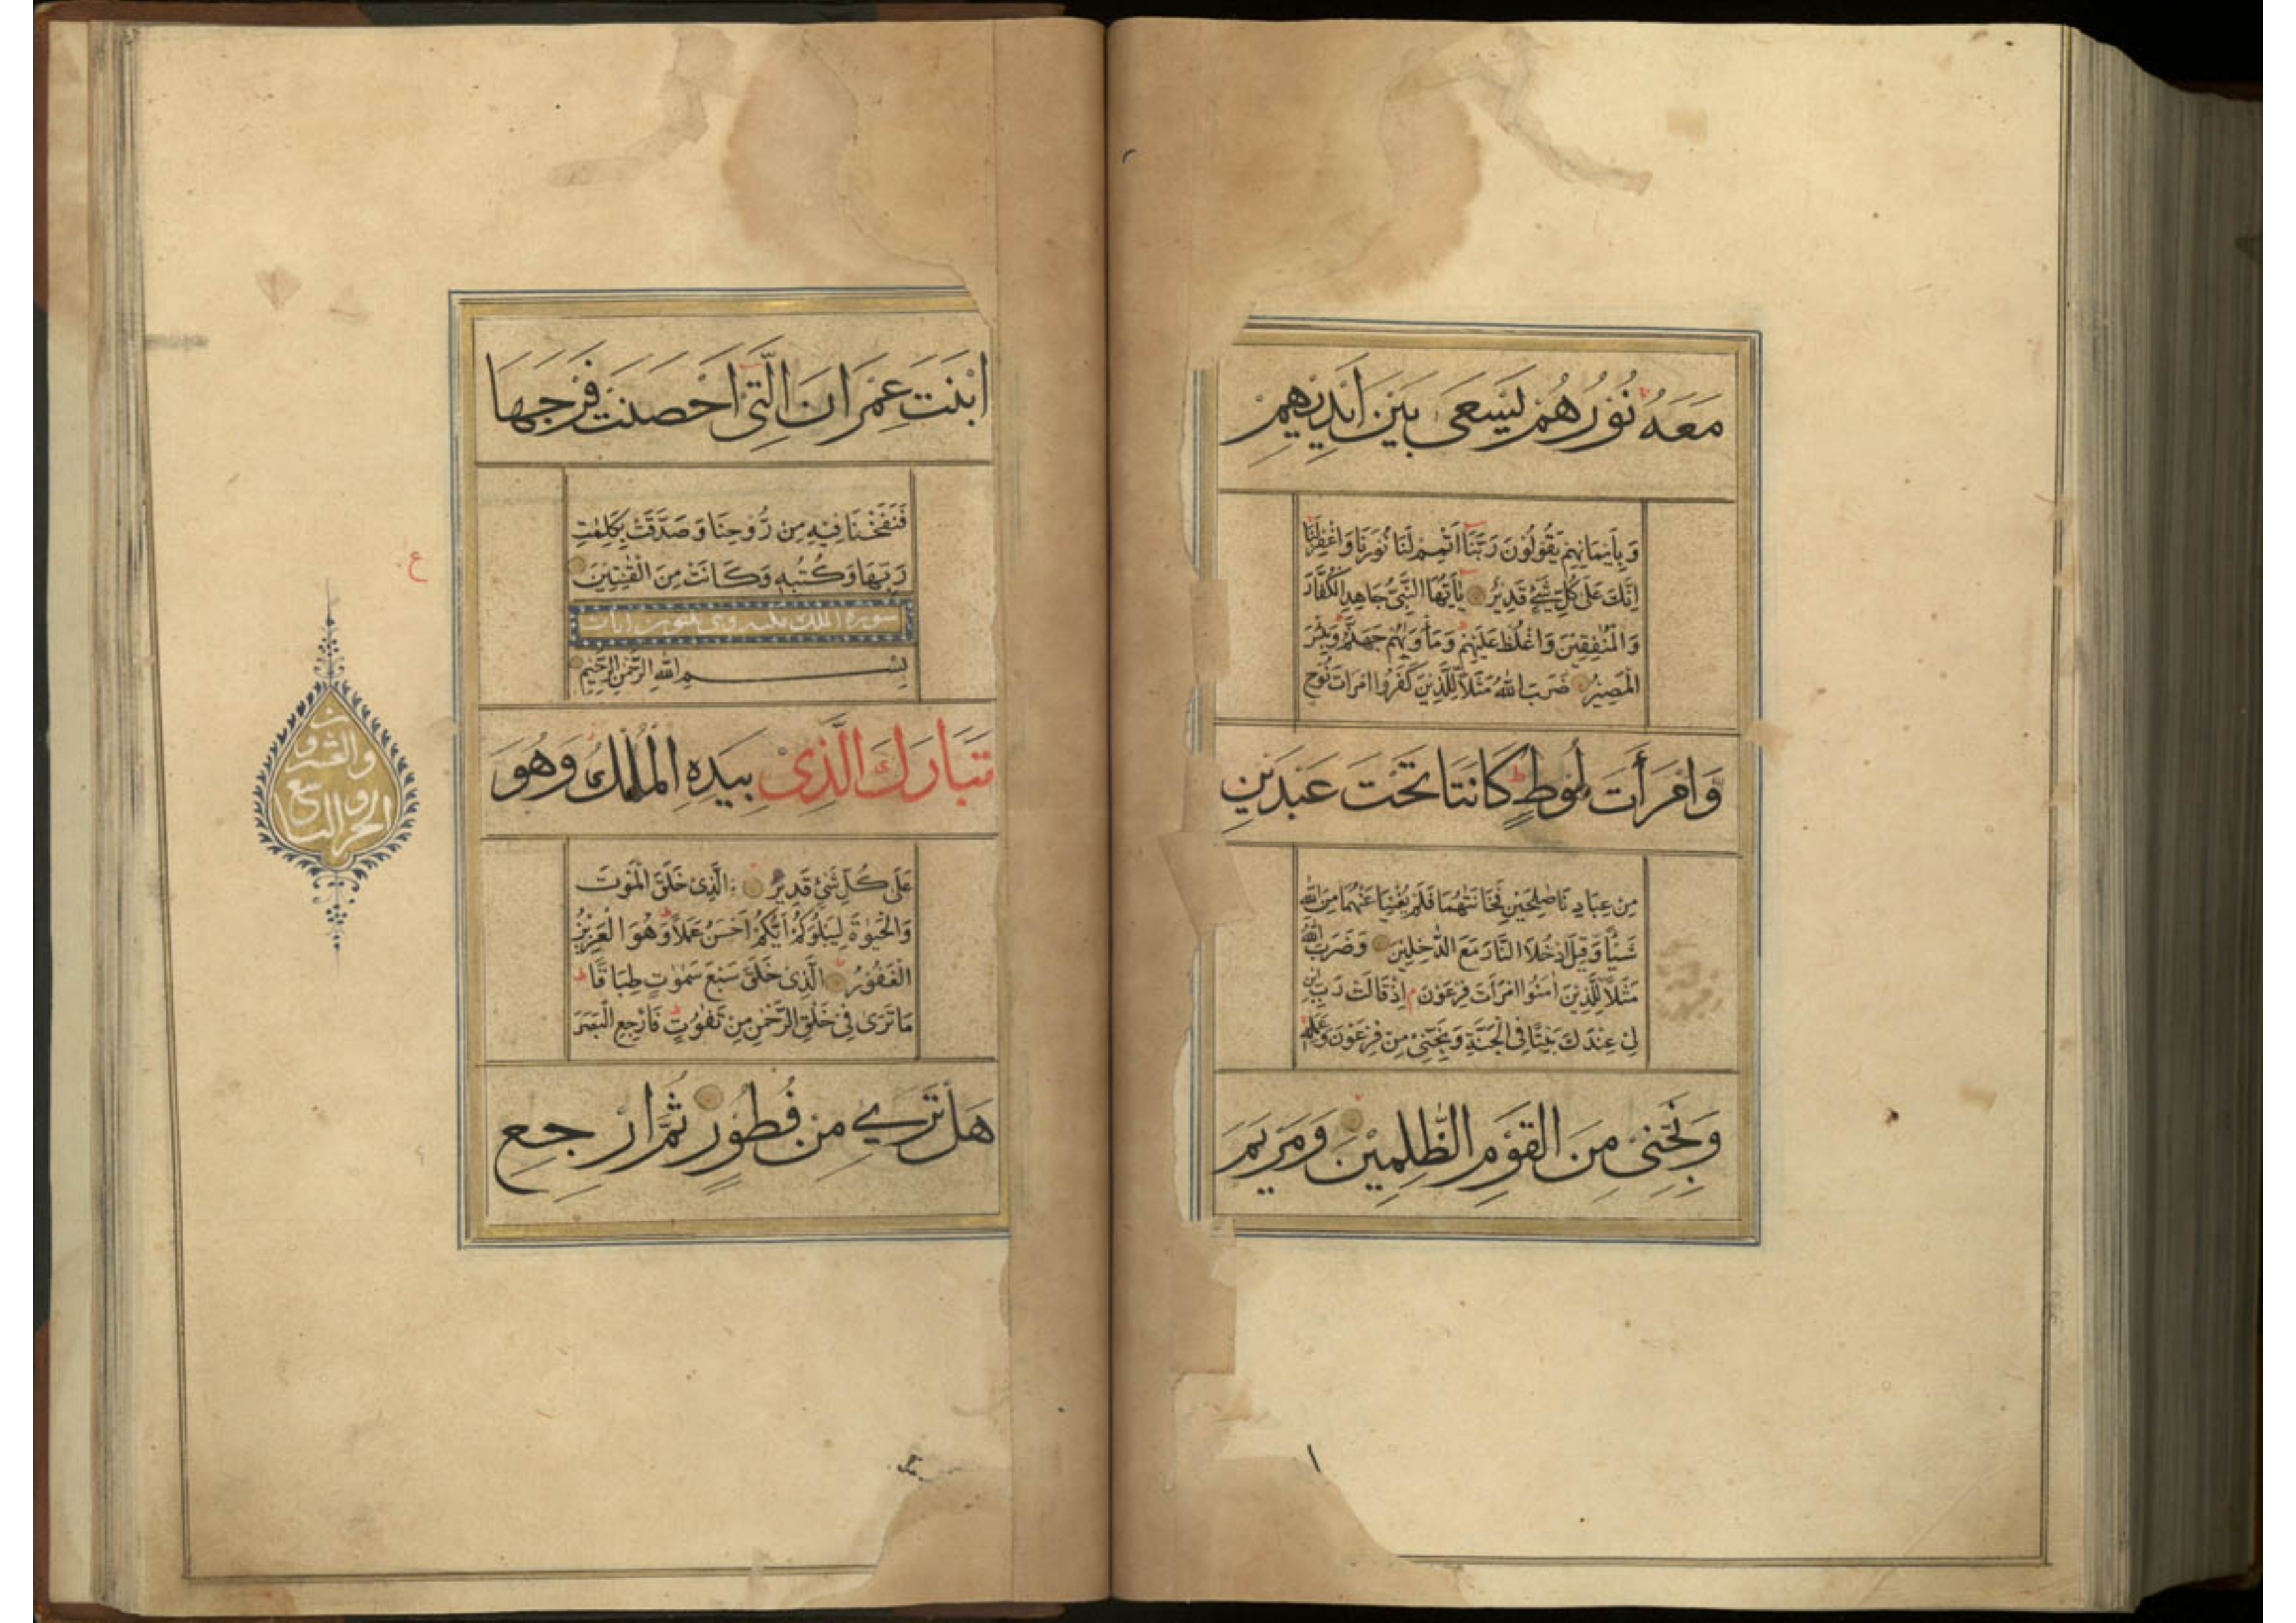 مَعَهُ نُوْرُهُمْ يَسْعَى بَيْنَ اَيْدِيْهِمْ
وَبِاَيْمَانِهِمْ يَقُوْلُوْنَ رَبَّنَا اَتْمِمْ لَنَا نُوْرَنَا وَاغْفِرْلَنَا
اِنَّكَ عَلٰى كُلِّ شَيْءٍ قَدِيْرٌ يٰاَيُّهَا النَّبِيُّ جَاهِدِ الْكُفَّارَ
وَالْمُنٰفِقِيْنَ وَاغْلُظْ عَلَيْهِمْ وَمَاْوٰيهُمْ جَهَنَّمُ وَبِئْسَ
الْمَصِيْرُ ضَرَبَ اللّٰهُ مَثَلًا لِلَّذِيْنَ كَفَرُوا امْرَاَتَ نُوْحٍ
وَامْرَأَتَ لُوْطٍ كَانَتَا تَحْتَ عَبْدَيْنِ
مِنْ عِبَادِنَا صَالِحَيْنِ فَخَانَتٰهُمَا فَلَمْ يُغْنِيَا عَنْهُمَا مِنَ اللّٰهِ
شَيْـًٔا وَقِيْلَ ادْخُلَا النَّارَ مَعَ الدّٰخِلِيْنَ وَضَرَبَ اللّٰهُ
مَثَلًا لِلَّذِيْنَ اٰمَنُوا امْرَاَتَ فِرْعَوْنَ م اِذْ قَالَتْ رَبِّ ابْنِ
لِيْ عِنْدَكَ بَيْتًا فِي الْجَنَّةِ وَنَجِّنِيْ مِنْ فِرْعَوْنَ وَعَمَلِهٖ
وَنَجِّنِيْ مِنَ الْقَوْمِ الظّٰلِمِيْنَ وَمَرْيَمَ
ابْنَتَ عِمْرَانَ الَّتِيْ اَحْصَنَتْ فَرْجَهَا
فَنَفَخْنَا فِيْهِ مِنْ رُّوْحِنَا وَصَدَّقَتْ بِكَلِمٰتِ
رَبِّهَا وَكُتُبِهٖ وَكَانَتْ مِنَ الْقٰنِتِيْنَ
ع
سورة الملك مكية وهي ثلثون ايات
بِسْمِ اللّٰهِ الرَّحْمٰنِ الرَّحِيْمِ
تَبَارَكَ الَّذِيْ بِيَدِهِ الْمُلْكُ وَهُوَ
الجزو التاسع
والعشرون
عَلٰى كُلِّ شَيْءٍ قَدِيْرٌ الَّذِيْ خَلَقَ الْمَوْتَ
وَالْحَيٰوةَ لِيَبْلُوَكُمْ اَيُّكُمْ اَحْسَنُ عَمَلًا وَهُوَ الْعَزِيْزُ
الْغَفُوْرُ الَّذِيْ خَلَقَ سَبْعَ سَمٰوٰتٍ طِبَاقًا ط
مَا تَرٰى فِيْ خَلْقِ الرَّحْمٰنِ مِنْ تَفٰوُتٍ فَارْجِعِ الْبَصَرَ
هَلْ تَرٰي مِنْ فُطُوْرٍ ثُمَّ ارْجِعِ